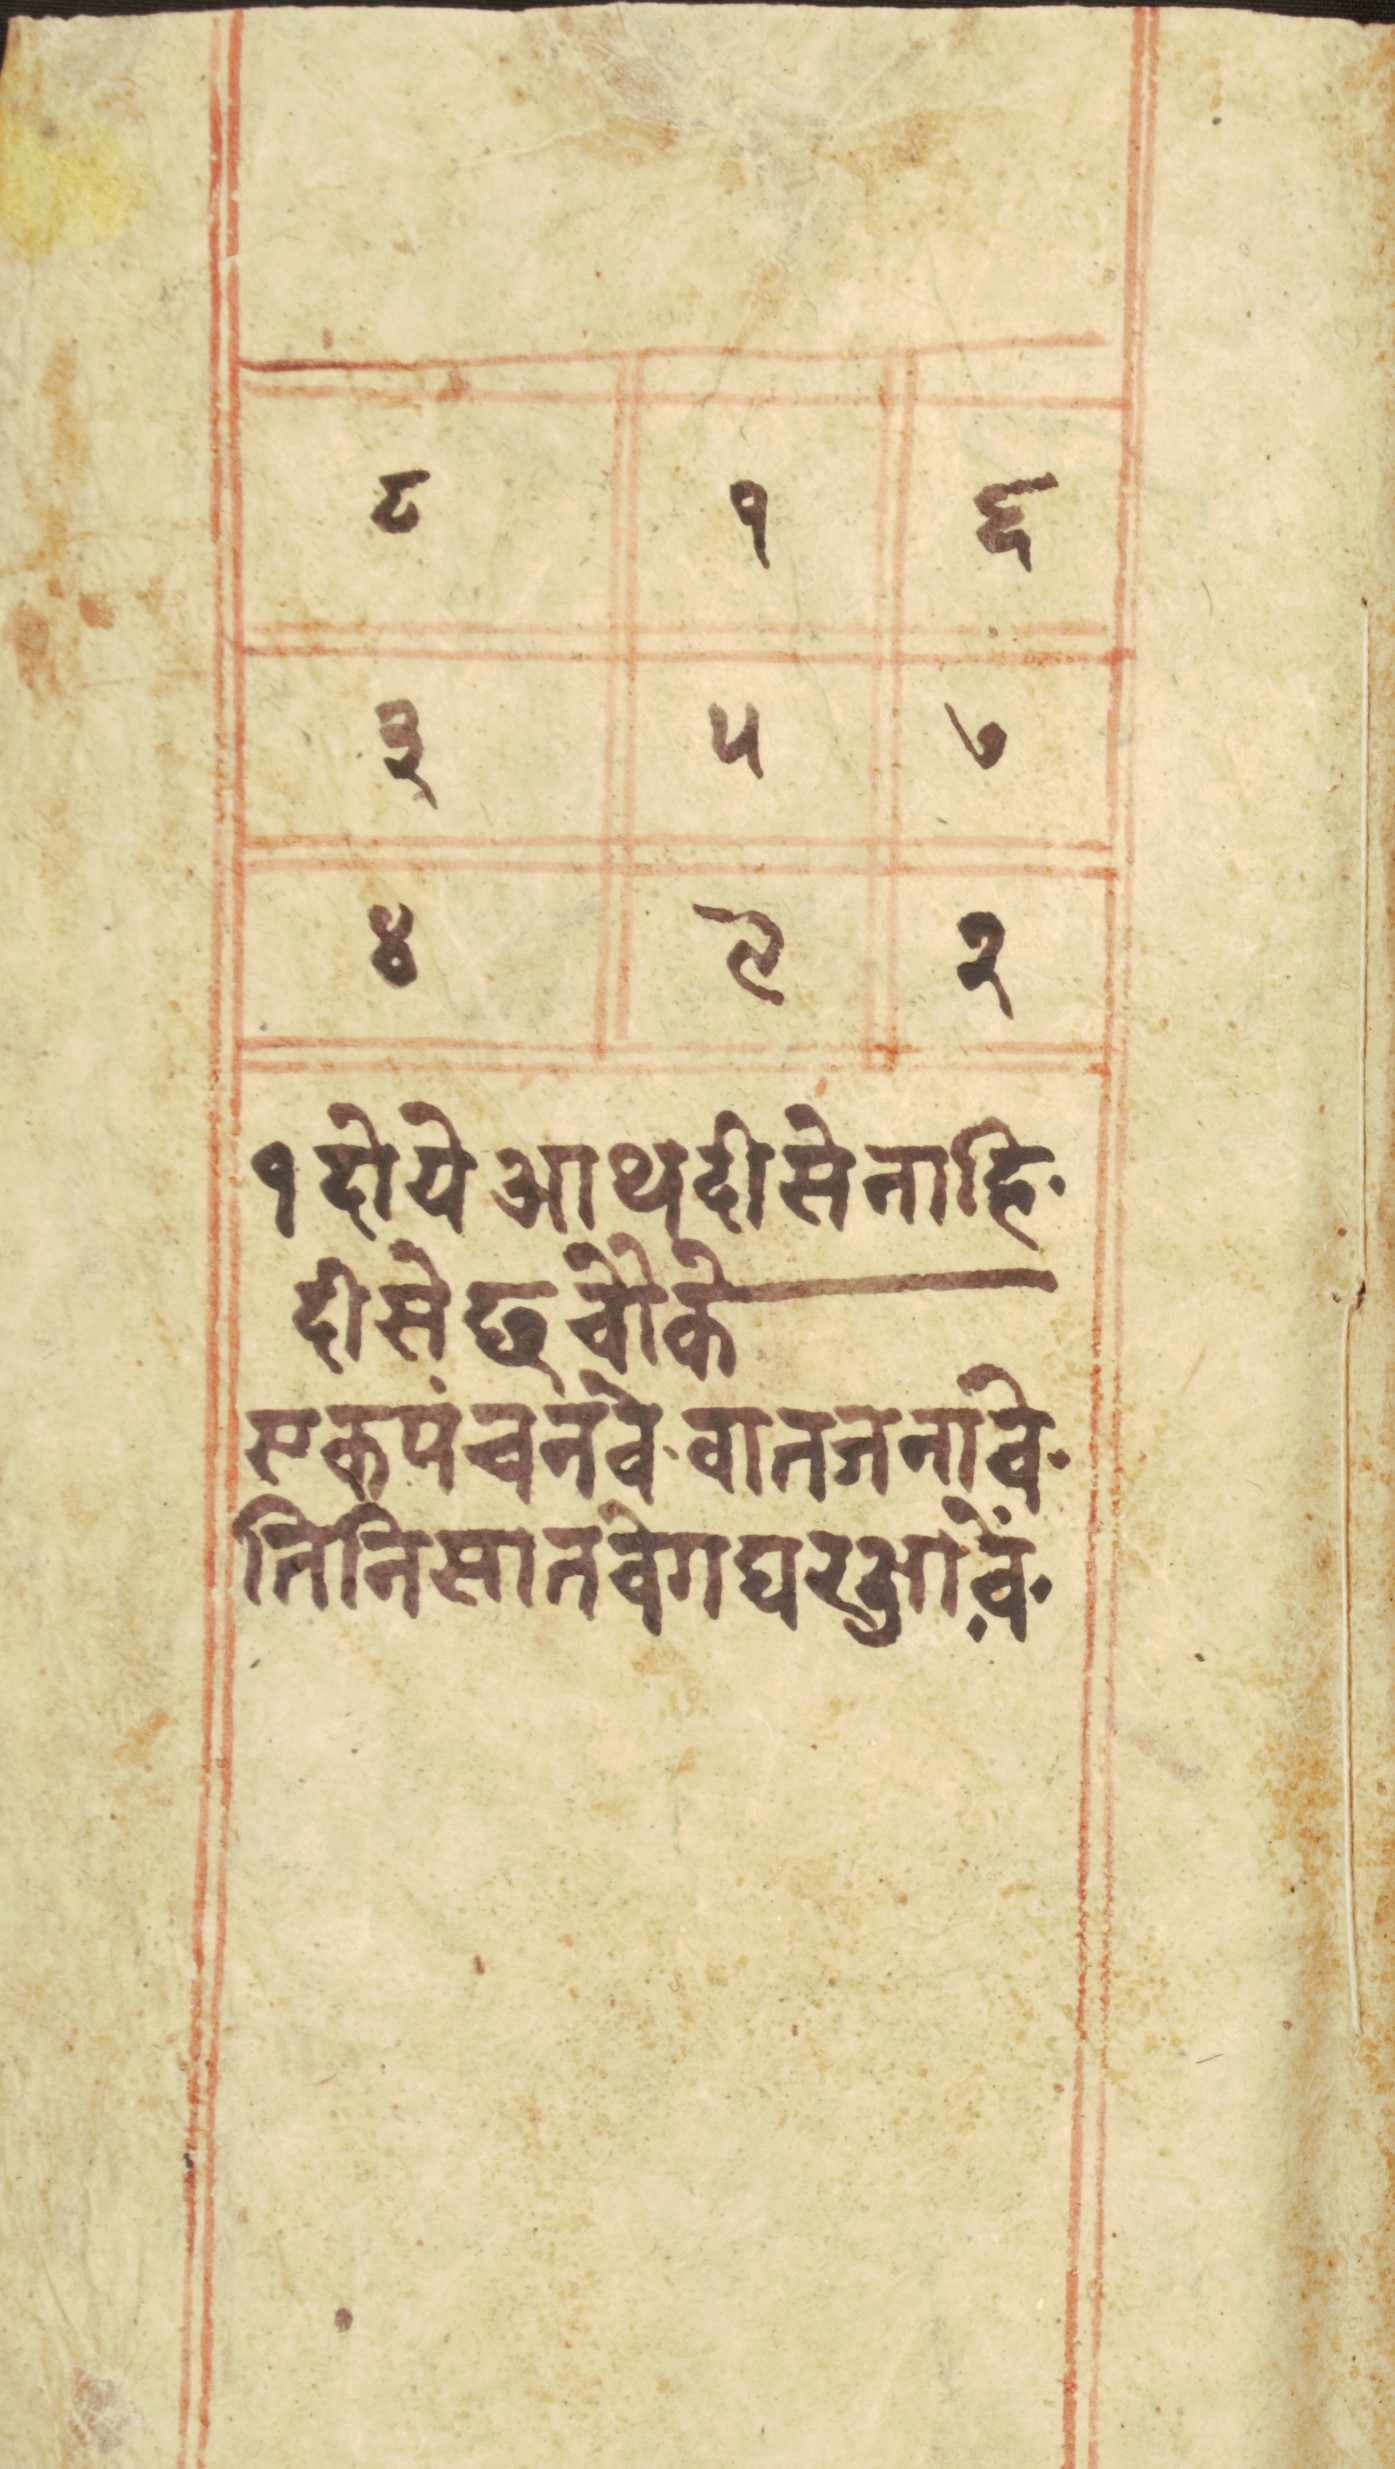 ८ १ ६
३ ५ ७
४ ९ २
१ दोये आथ दीसे नाहि·
दीसे छ चौके
एक पंच नवे· वात जनावे·
तिनि सात वेग घर आवें·